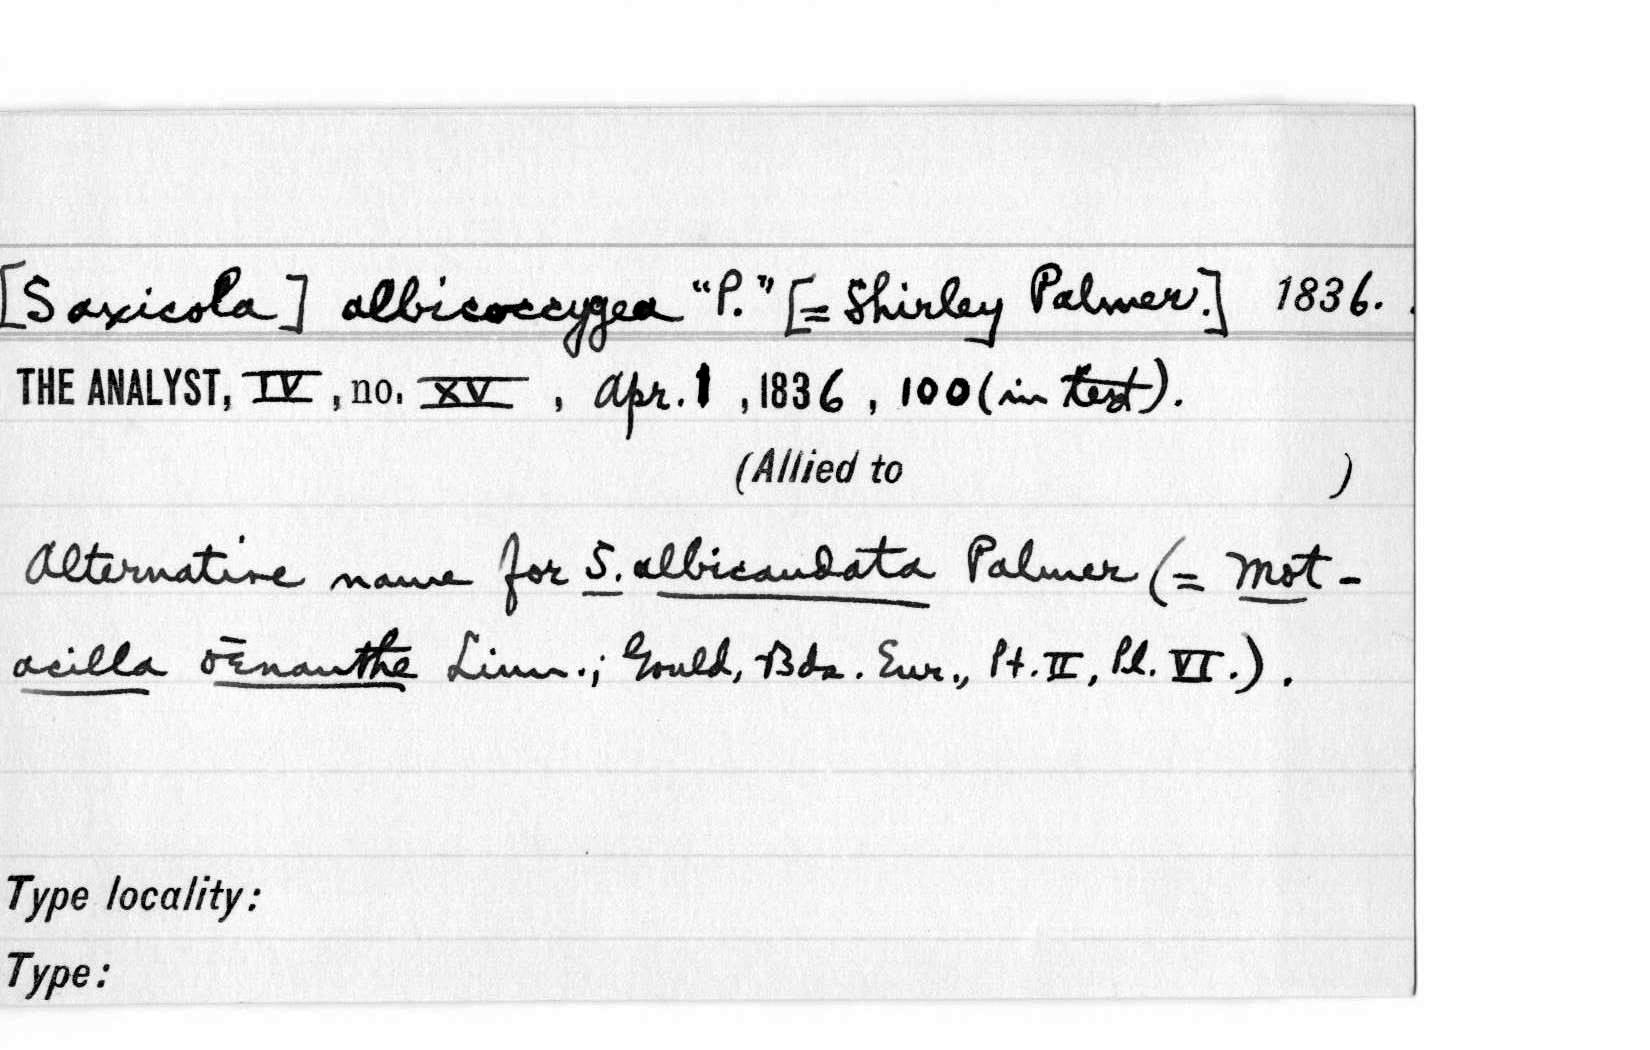 [Saxicola] albicoccygea "P." [= Shirley Palmer.] 1836.
THE ANALYST, IV, no. XV, Apr. 1, 1836, 100 (in text).
(Allied to )
Alternative name for S. albicaudata Palmer (= Mot-
acilla œnanthe Linn.; Gould, Bds. Eur., Pt. II, Pl. VI.).
Type locality:
Type: